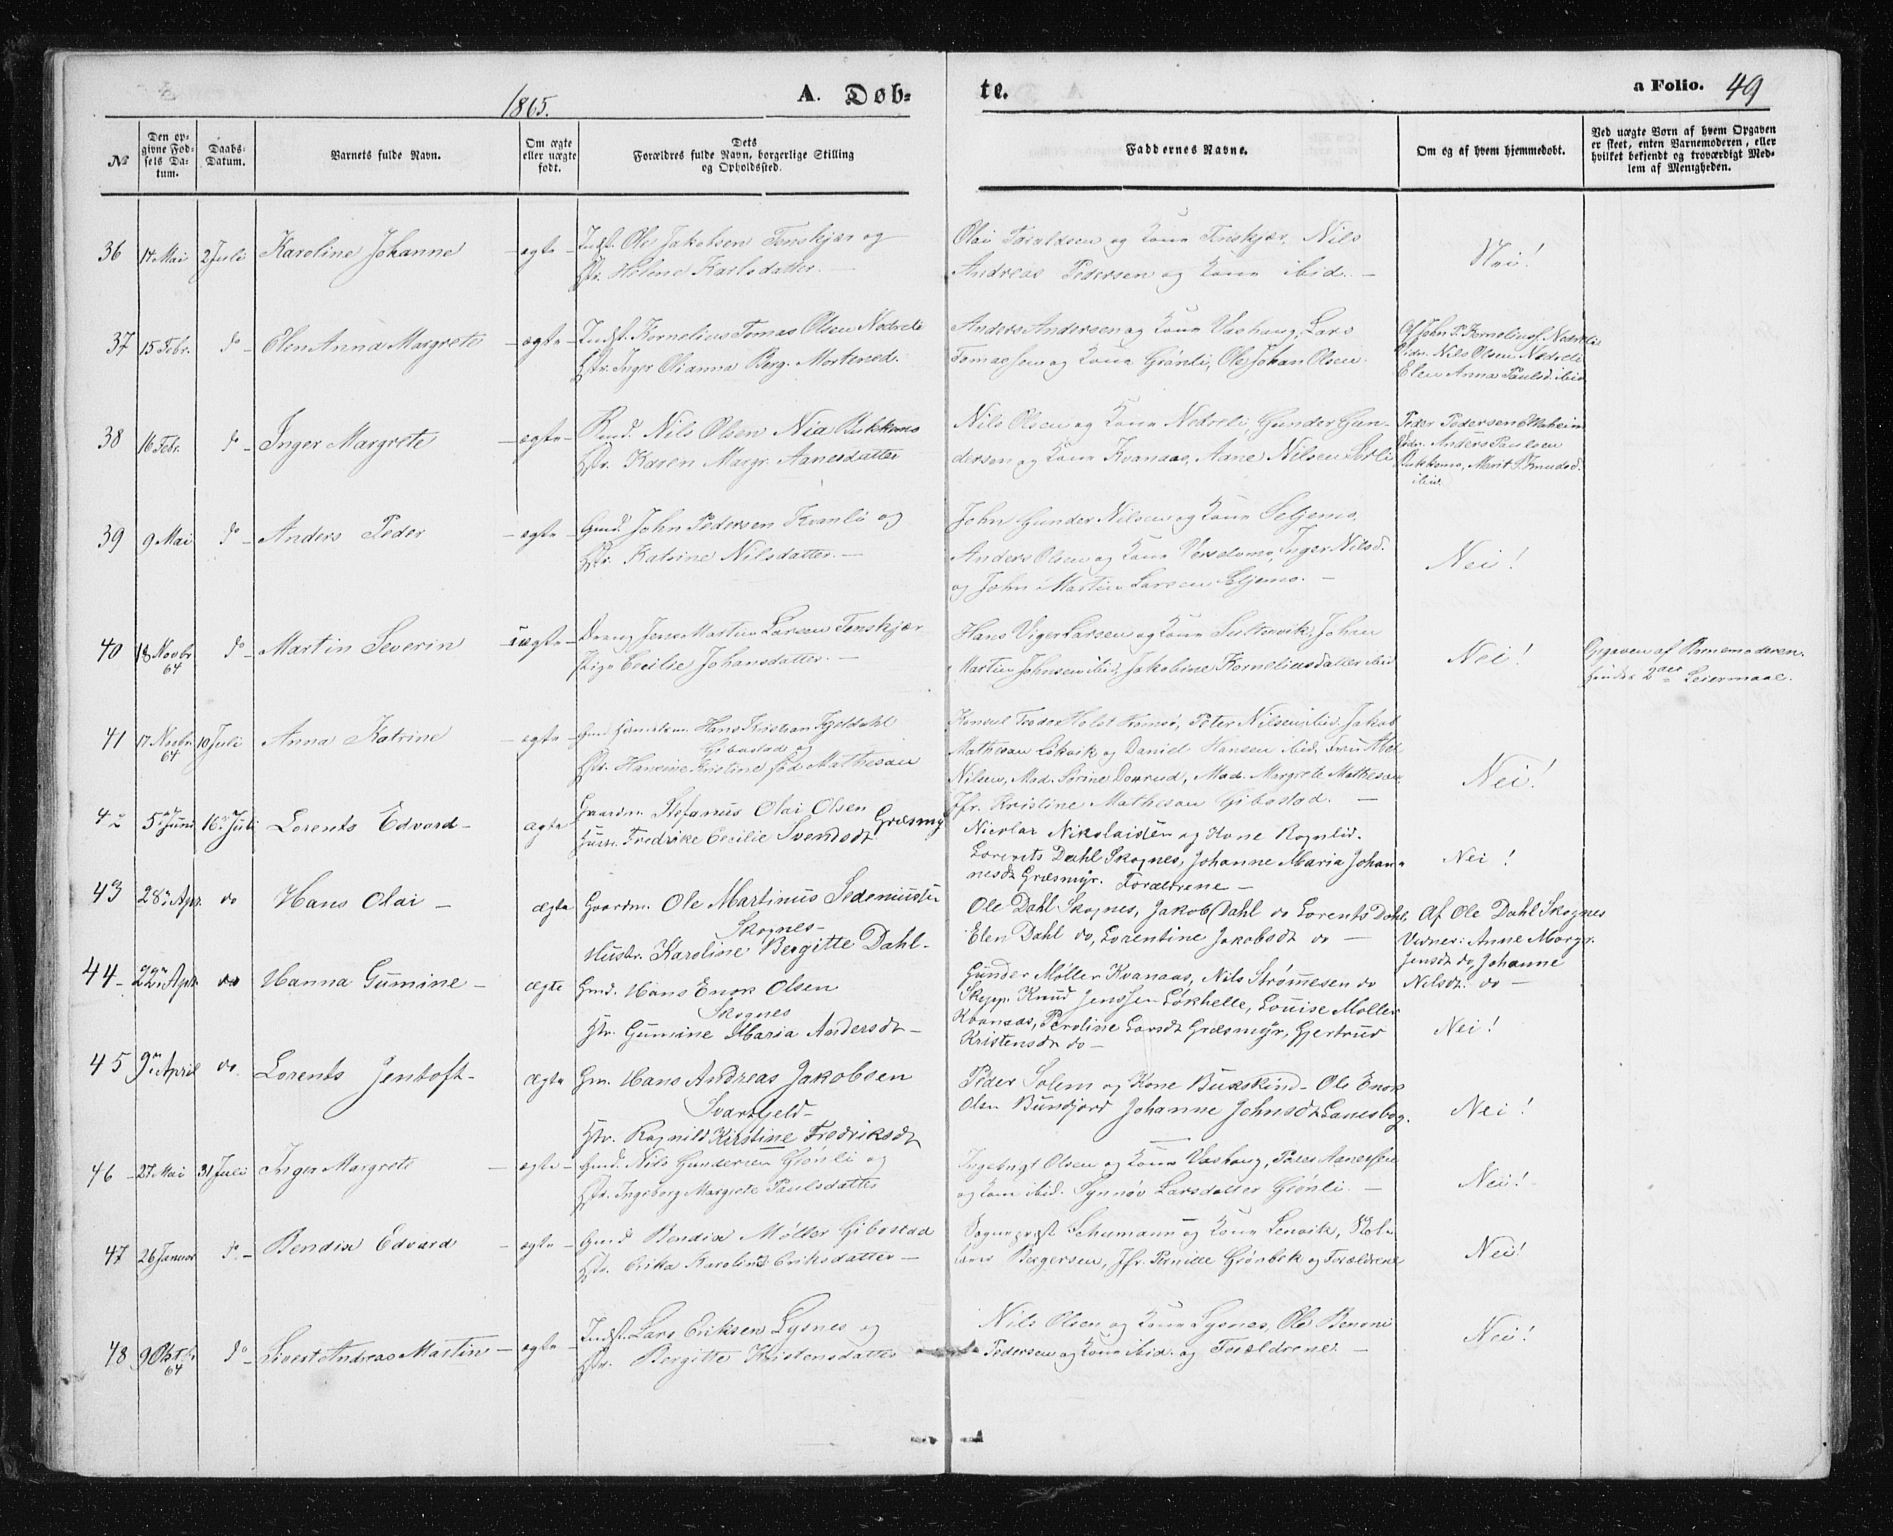 1865.
A. Døb-
te.
a Folio. 49
№
Den op-
givne Fød-
sels Da-
tum.
Daabs-
Datum.
Barnets fulde Navn.
Om ægte
eller uægte
født.
Dets
Forældres fulde Navn, borgerlige Stilling
og Opholdssted.
Faddernes Navne.
Om og af hvem hjemmedøbt.
Ved uægte Børn af hvem Opgaven
er skeet, enten Barnemoderen, eller
hvilket bekjendt og troværdigt Med-
lem af Menigheden.
36 14 Mai 2 Juli Karoline Johanne - ægte - Indst. Ole Jakobsen Finskjær og
Hstr. Helene Karlsdatter. —
Olai Taraldsen og Kone Finskjær, Nils
Andreas Pedersen og Kone ibid. —
Nei!
37 15 Febr. do - Elen Anna Margrete - ægte - Indst. Kornelius Tomas Olsen Nedreli
Hstr. Inger Olianna Berg. Mortensd.
Anders Andersen og Kone Vashaug, Lars
Tomassen og Kone Grönli, Ole Johan Olsen.
Af John P. Korneliuss. Nedreli
Vidn. Nils Olsen Nedreli
Elen Anna Paulsd. ibid
38 16 Febr. do - Inger Margrete - ægte - Nils Olsen Nia Bukkemo
Hstr. Karen Margr. Aanesdatter
Nils Olsen og Kone Nedreli, Gunder Gun-
dersen og Kone Kvanaas, Aane Nilsen Sørli
Peder Pedersen
Vidn. Anders Paulsen
Bukkemo, Marit P. Knudsd.
ibid.
39 9 Mai do - Anders Peder - ægte - Gmd. John Pedersen Kvanli og
Hstr. Katrine Nilsdatter. —
John Gunder Nilsen og Kone Seljemo,
Anders Olsen og Kone, Inger Nilsd.
og John Martin Larsen Seljemo. —
Nei!
40 18 Novbr. 64 do - Martin Severin uægte - Dreng Jens Martin Larsen Finskjær
Pige Cecilie Johansdatter. —
Hans Viger Larsen og Kone Sultenvik, Johan
Martin Johnsen ibid, Jakobine Korneliusdatter ibid
Nei!
Opgaven af Barnemoderen.
Hendes 2det Leiermaal.
41 17 Novbr. 64 10 Juli Anna Katrine - ægte - Hans Kristian Fjeldahl
Gibostad og
Hstr. Hansine Kristine fød Mathesen
Konsul Holst Tromsø, Peter Nilsen ibid, Jakob
Mathesen Lökvik og Daniel Hansen ibid. Fru
Nilsen, Mad. Sørine, Mad. Margrete Mathesen
Jfr. Kristine Mathesen Gibostad. —
Nei!
42 5te Juni 16de Juli Lorents Edvard - ægte Gaardm. Stefanus Olai Olsen
Hustr. Fredrike Cecilie Svendsdt Græsmyr
Nicolai Nikolaisen og Kone Rognlid.
Lorents Dahl Skognes, Johanne Maria Johan-
nesdt Græsmyr. Forældrene —
Nei!
43 28de Apr. do Hans Olai - ægte Gaardm. Ole Martinus
Skognes -
Hustr. Karoline Bergitte Dahl -
Ole Dahl Skognes, Jakob Dahl do Lorents Dahl,
Elen Dahl do, Lorentine Jakobsdt do —
Af Ole Dahl Skognes
Vidner: Anne Margr.
Jensdt do, Johanne
Nilsdt. do —
44 - 22de Apr. do Hanna Gumine - ægte Gmd. Hans Enok Olsen
Skognes
Hstr. Gumine Maria Andersdt -
Gunder Møller Kvanaas, Nils Strømesen do
Skpp. Knud Jenssen Løkhelle, Louise Møller
Kvanaas, Peroline Larsdt Græsmyr, Gjertrud
Kristensdt do -
Nei!
45 9de April do Lorents Jentoft - ægte Gm. Hans Andreas Jakobsen
Svartfjeld -
Hstr. Ragnild Kirstine Fredriksdt
Peder Solem og Kone Buxskind - Ole Enok
Olsen Bundjord Johanne Johnsdt Lanesbog.
Nei!
46 - 27 Mai 31 Juli Inger Margrete - ægte - Gmd. Nils Gundersen Grönli og
Hstr. Ingeborg Margrete Paulsdatter
Ingebrigt Olsen og Kone Vashaug, Peder Aanessen
og Kone ibid. Synnøv Larsdatter Grönli. —
Nei!
47 26 Januar do - Bendix Edvard - ægte - Gmd Bendix Møller Gibostad
Hstr. Erika Karoline Eriksdatter —
Sogneprest Schumann og Kone Lenvik,
Bergersen, Jfr. Pernille Grönbek og Forældrene
Nei!
48 9 Oktbr. 64 do - Sivert Andreas Martin - ægte - Indst. Lars Eriksen Lysnes og
Hstr. Bergitte Kristensdatter
Nils Olsen og Kone Lysnes, Ole Benoni
Pedersen og Kone ibid. og Forældrene. —
Nei!